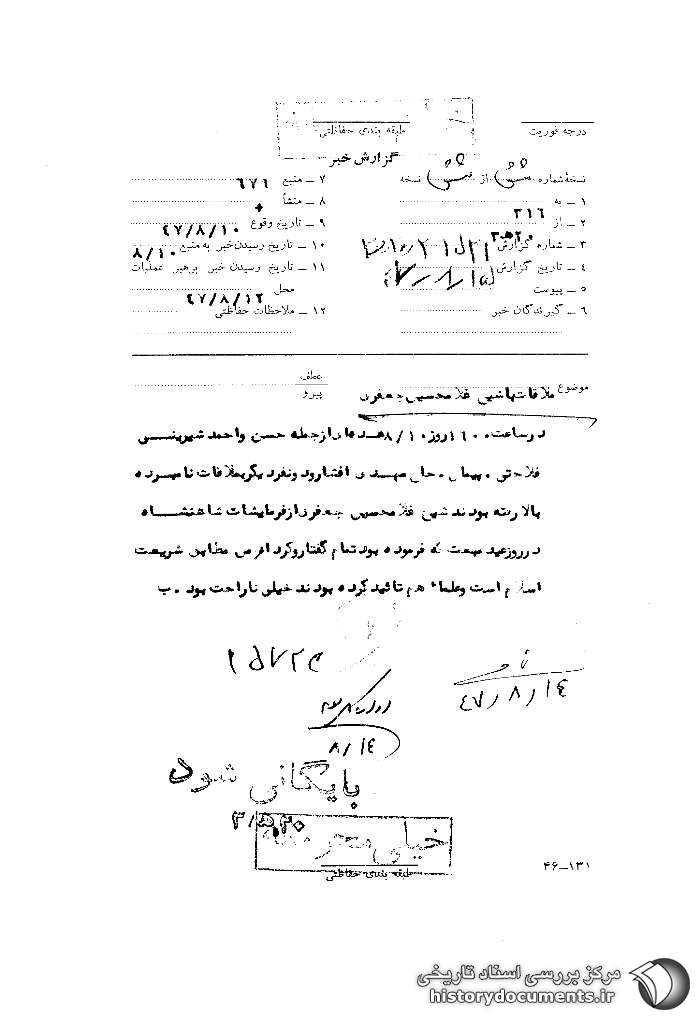 درجه فوریت
طبقه بندی حفاظتی
گزارش خبر
نسخهٔ شماره شش از شش نسخه
۱ ـ به
۲ ـ از ۳۱۶
۳ ـ شماره گزارش
۴ ـ تاریخ گزارش
۵ ـ پیوست
۶ ـ گیرندگان خبر
۷ ـ منبع ۶۷۶
۸ ـ منشأ
۹ ـ تاریخ وقوع ۴۷/۸/۱۰
۱۰ ـ تاریخ رسیدن خبر به منبع ۸/۱۰
۱۱ ـ تاریخ رسیدن خبر برهبر عملیات
محل ۴۷/۸/۱۲
۱۲ ـ ملاحظات حفاظتی
عطف
پیرو
موضوع ملاقات با شیخ غلامحسین جعفری
در ساعت ۱۶۰۰ روز ۸/۱۰ عده ای از جمله حسن واحمد شیرینی
فلاحتی مهدی افشار ودونفر دیگر بملاقات نامبرده
بالا رفته بودند شیخ غلامحسین جعفری از فرمایشات شاهنشاه
در روز عید مبعث که فرموده بود تمام گفتار و کردار من مطابق شریعت
اسلام است وعلماء هم تائید کرده بودند خیلی ناراحت بود . ب
۴۷/۸/۱۴
۸/۱۴
بایگانی شود
خیلی محرمانه
طبقه بندی حفاظتی
۴۶-۱۳۱
مرکز بررسی اسناد تاریخی
historydocuments.ir